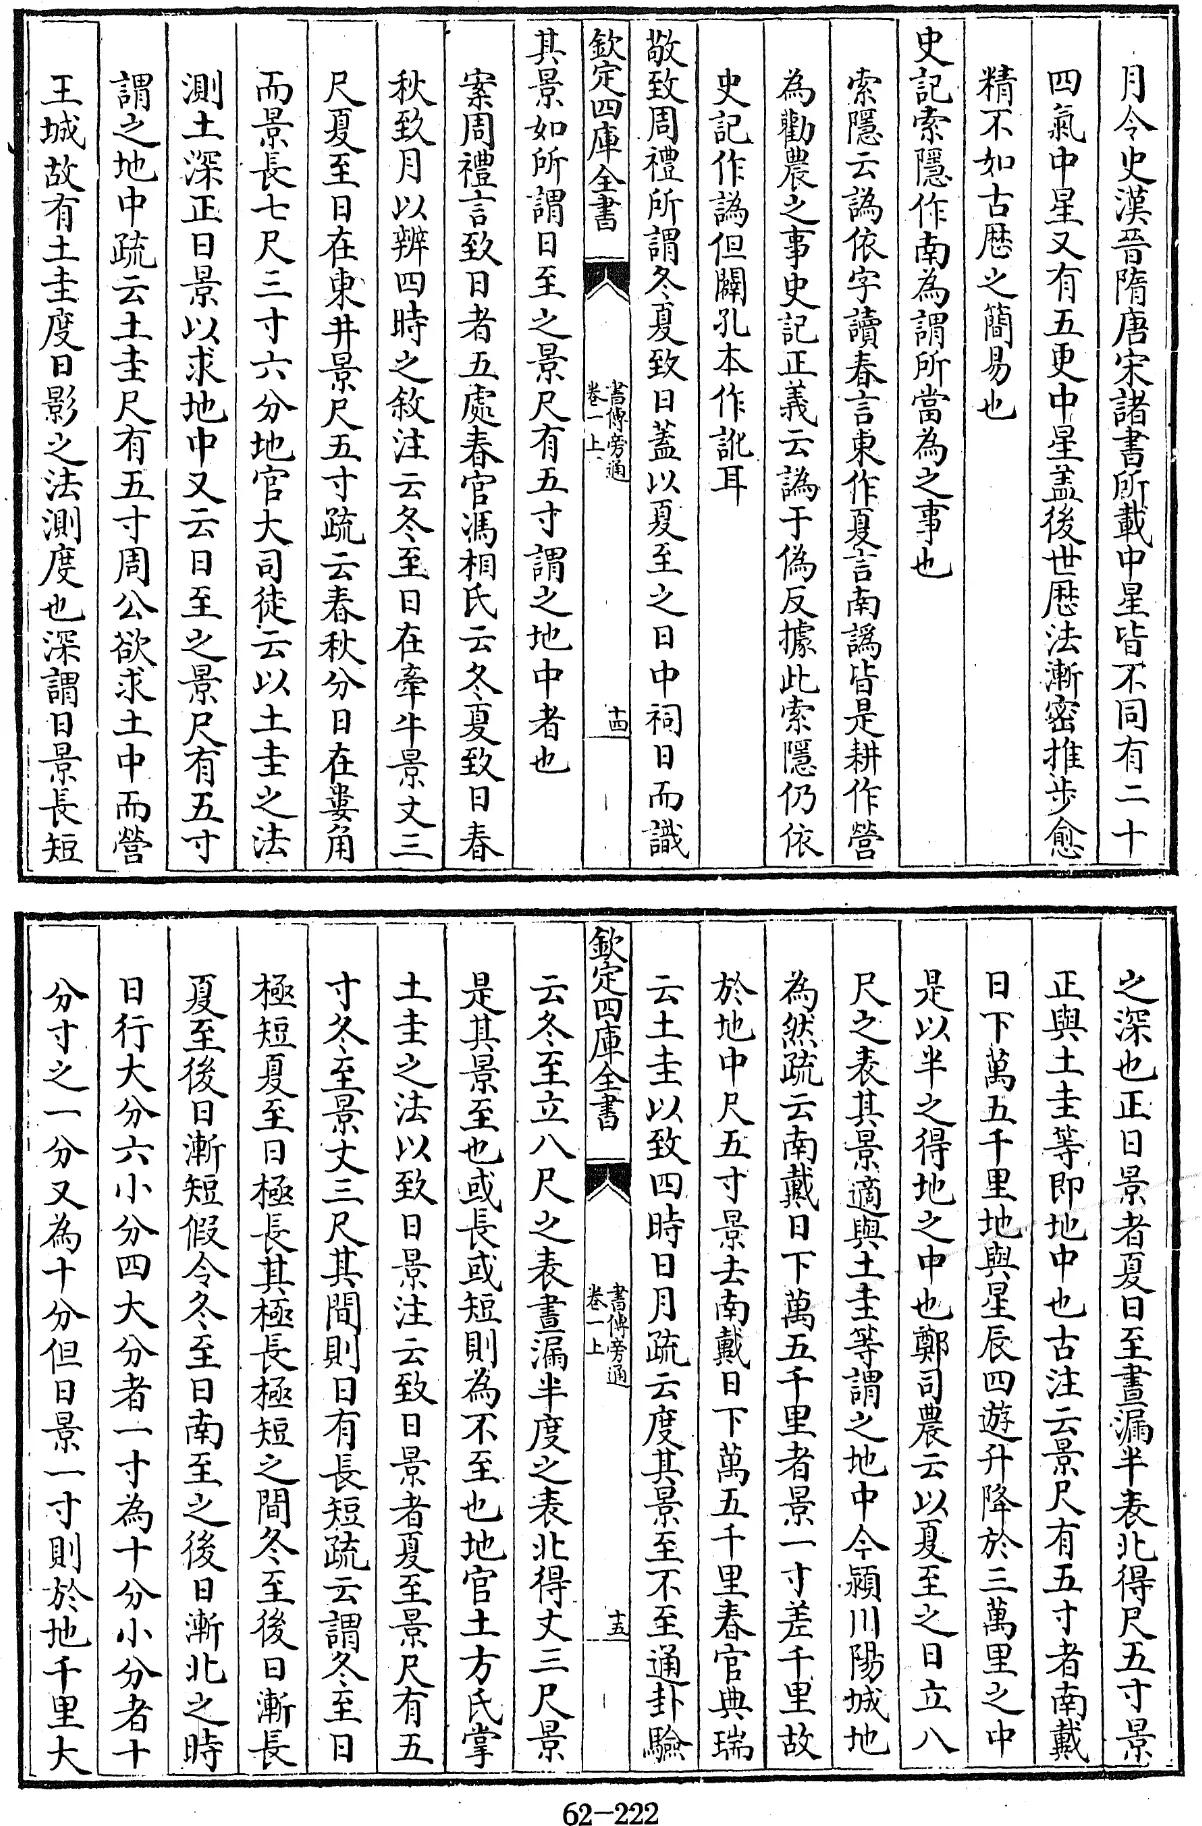 月令史漢晉隋唐宋諸書所載中星皆不同有二十
四氣中星又有五更中星盖後世厯法漸密推步愈
精不如古厯之簡易也
史記索隱作南為謂所當為之事也
索隱云譌依字讀春言東作夏言南譌皆是耕作營
為勸農之事史記正義云譌于偽反據此索隱仍依
史記作譌但闢孔本作訛耳
敬致周禮所謂冬夏致日蓋以夏至之日中祠日而識
欽定四庫全書
書傳旁通
卷一上
十四
其景如所謂日至之景尺有五寸謂之地中者也
案周禮言致日者五處春官馮相氏云冬夏致日春
秋致月以辨四時之敘注云冬至日在牽牛景丈三
尺夏至日在東井景尺五寸疏云春秋分日在婁角
而景長七尺三寸六分地官大司徒云以土圭之法
測土深正日景以求地中又云日至之景尺有五寸
謂之地中疏云土圭尺有五寸周公欲求土中而營
王城故有土圭度日影之法測度也深謂日景長短
之深也正日景者夏日至晝漏半表北得尺五寸景
正與土圭等即地中也古注云景尺有五寸者南戴
日下萬五千里地與星辰四遊升降於三萬里之中
是以半之得地之中也鄭司農云以夏至之日立八
尺之表其景適與土圭等謂之地中今潁川陽城地
為然疏云南戴日下萬五千里者景一寸差千里故
於地中尺五寸景去南戴日下萬五千里春官典瑞
云土圭以致四時日月疏云度其景至不至通卦驗
欽定四庫全書
書傳旁通
卷一上
十五
云冬至立八尺之表晝漏半度之表北得丈三尺景
是其景至也或長或短則為不至也地官土方氏掌
土圭之法以致日景注云致日景者夏至景尺有五
寸冬至景丈三尺其間則日有長短疏云謂冬至日
極短夏至日極長其極長極短之間冬至後日漸長
夏至後日漸短假令冬至日南至之後日漸北之時
日行大分六小分四大分者一寸為十分小分者十
分寸之一分又為十分但日景一寸則於地千里大
62-222